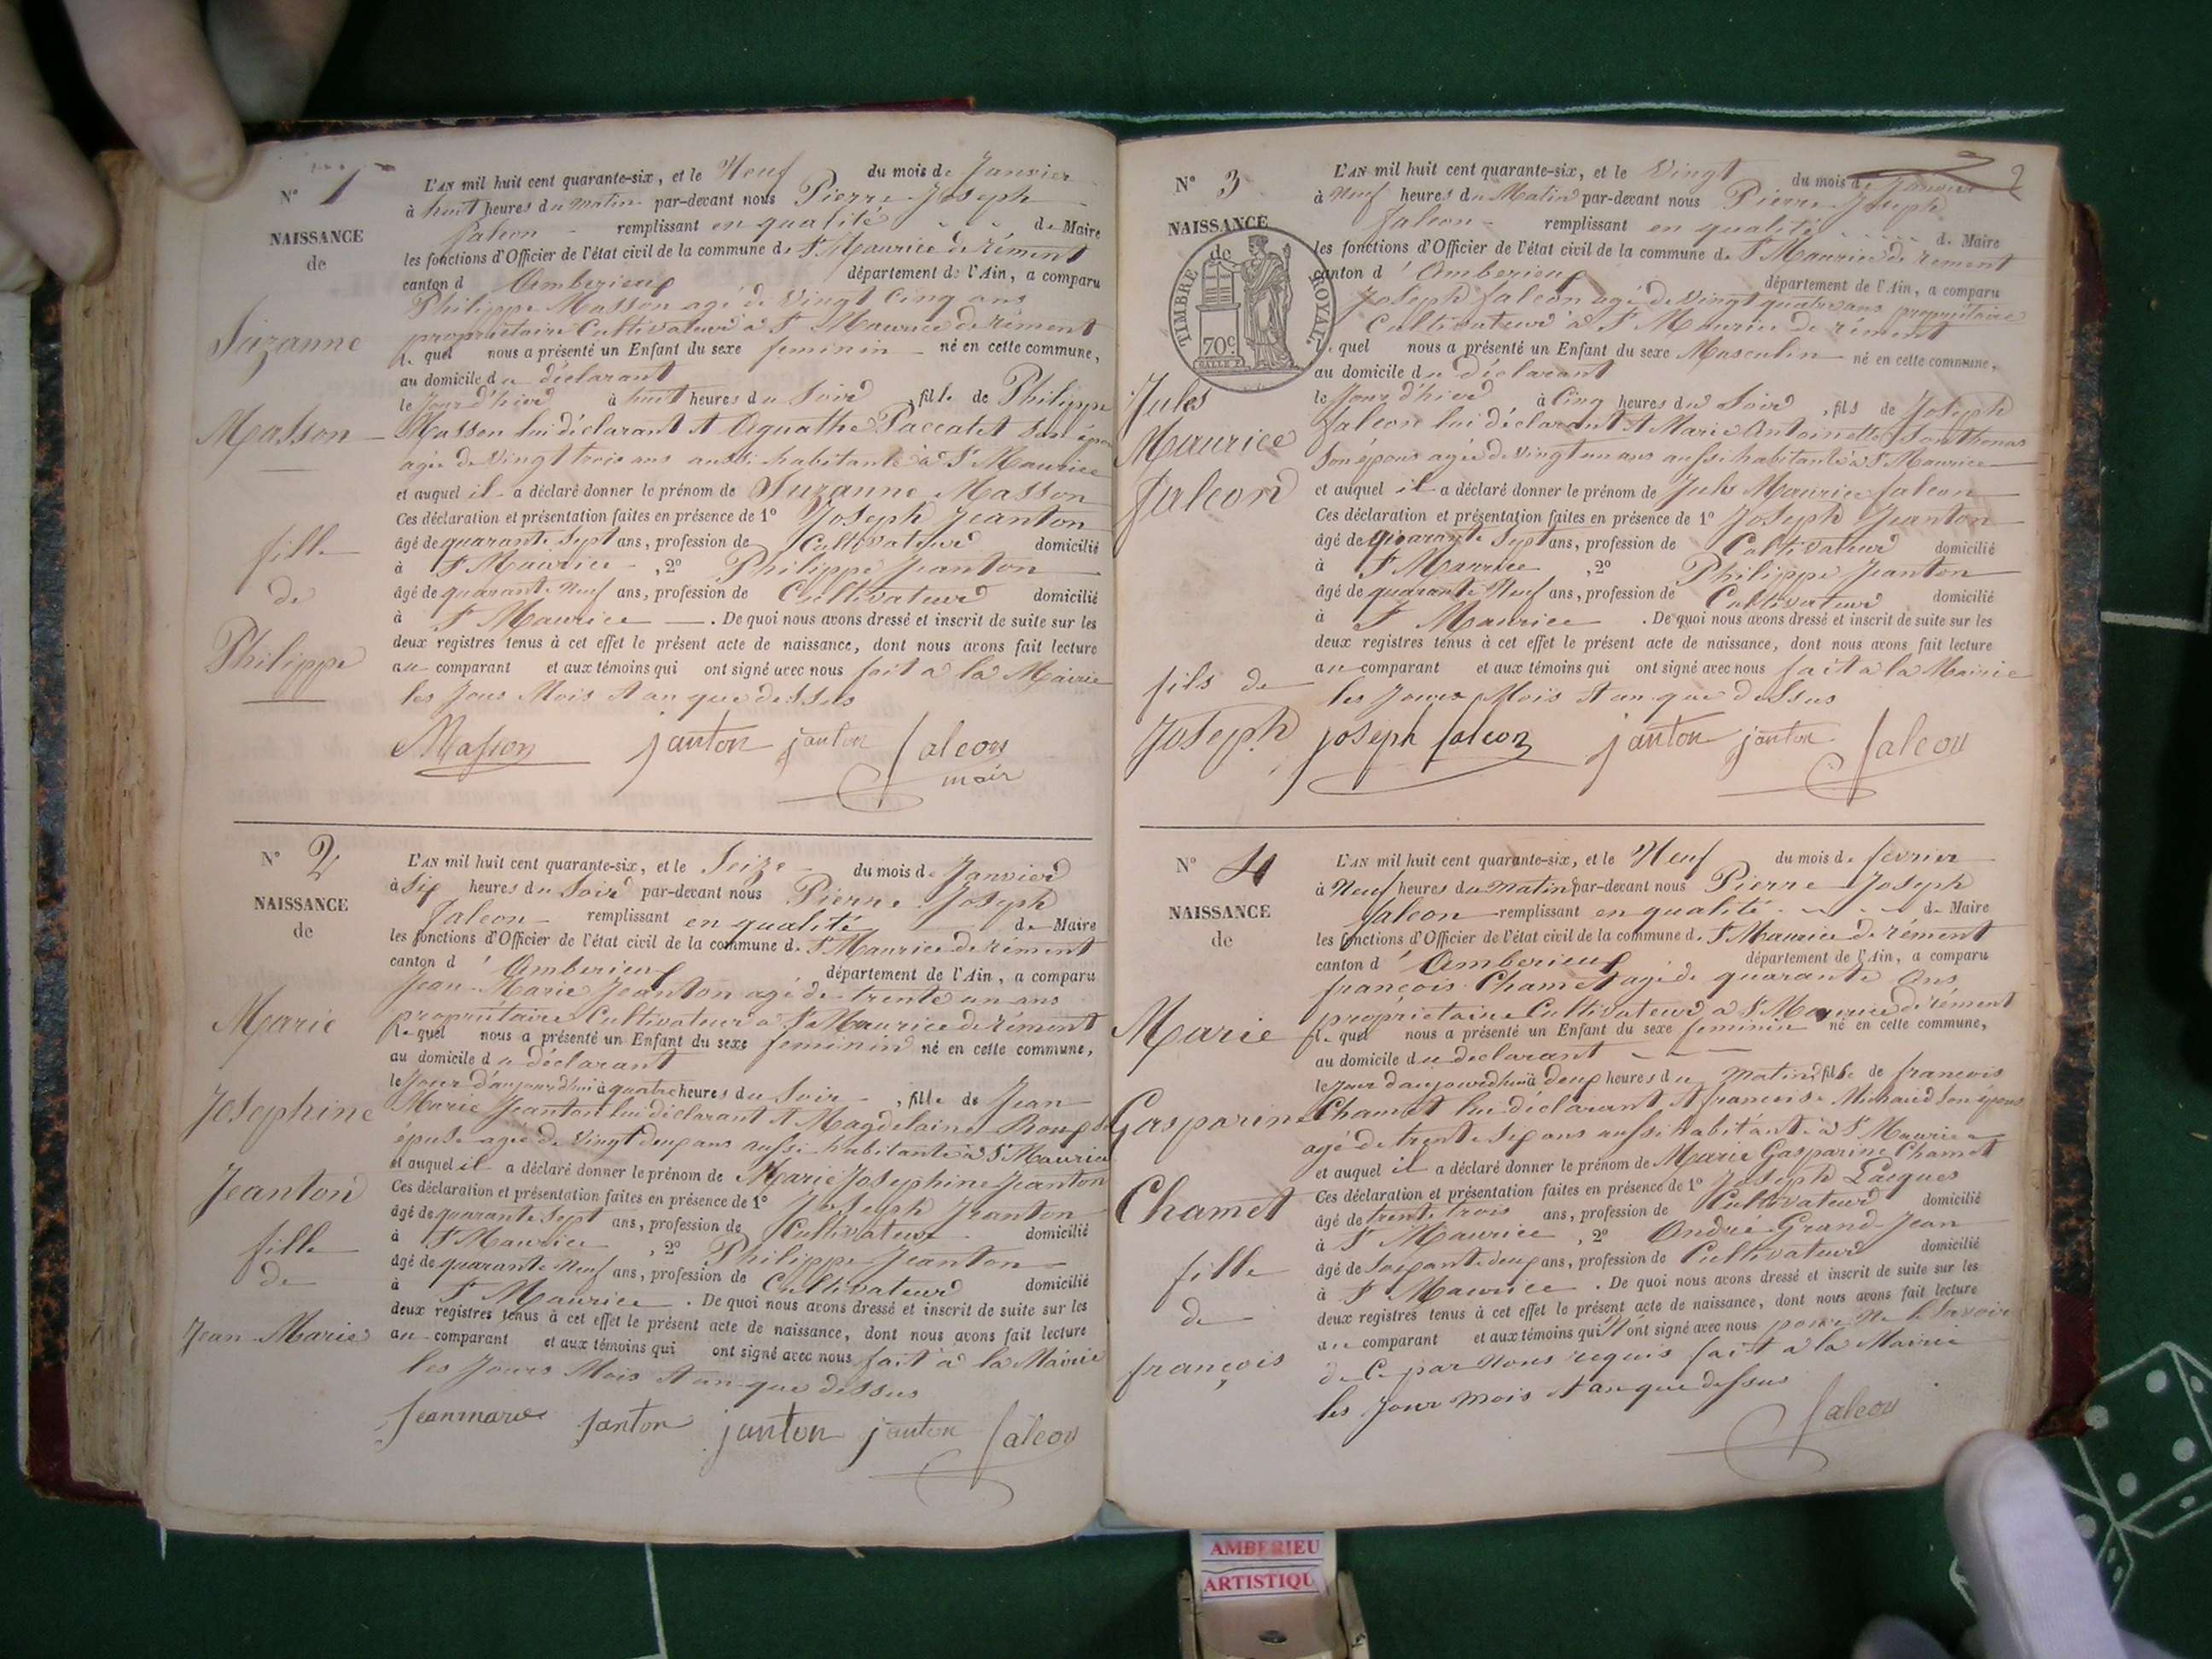 N° 1
NAISSANCE
de
Suzanne
Masson
fille
de
Philippe
L'AN mil huit cent quarante-six, et le Neuf du mois de Janvier
à huit heures du matin par-devant nous Pierre Joseph
falcon remplissant en qualité de Maire
les fonctions d'Officier de l'état civil de la commune de St Maurice de rément
canton d Amberieux département de l'Ain, a comparu
Philippe Masson agé de Vingt Cinq ans
propriétaire Cultivateur à St Maurice de rément
lequel nous a présenté un Enfant du sexe feminin né en cette commune,
au domicile du déclarant
le Jour d'hier à huit heures du Soir, fille de Philippe
Masson lui déclarant et Aguathe Paccalet son épou
agée de Vingt trois ans aussi habitante à St Maurice
et auquel il a déclaré donner le prénom de Suzanne Masson
Ces déclaration et présentation faites en présence de 1° Joseph Jeanton
âgé de quarante Sept ans, profession de Cultivateur domicilié
à St Maurice, 2° Philippe Jeanton
âgé de quarante Neuf ans, profession de Cultivateur domicilié
à St Maurice. De quoi nous avons dressé et inscrit de suite sur les
deux registres tenus à cet effet le présent acte de naissance, dont nous avons fait lecture
au comparant et aux témoins qui ont signé avec nous fait à la Mairie
les Jous Mois et an que dessus
Masson janton janton falcon
mair
N° 2
NAISSANCE
de
Marie
Josephine
Jeanton
fille
de
Jean Marie
L'AN mil huit cent quarante-six, et le Seize du mois de Janvier
à Six heures du Soir par-devant nous Pierre Joseph
falcon remplissant en qualité de Maire
les fonctions d'Officier de l'état civil de la commune de St Maurice de rément
canton d'Amberieux département de l'Ain, a comparu
Jean Marie Jeanton agé de trente un ans
propriétaire Cultivateur à St Maurice de rément
lequel nous a présenté un Enfant du sexe feminin né en cette commune,
au domicile du déclarant
le Jour d'aujourd'hui à quatre heures du Soir, fille de Jean
Marie Jeanton lui déclarant et Magdelaine
épuse agée de Vingt deux ans aussi habitante à St Maurice
et auquel il a déclaré donner le prénom de Marie Josephine Jeanton
Ces déclaration et présentation faites en présence de 1° Joseph Jeanton
âgé de quarante Sept ans, profession de Cultivateur domicilié
à St Maurice, 2° Philippe Jeanton
âgé de quarante Neuf ans, profession de Cultivateur domicilié
à St Maurice. De quoi nous avons dressé et inscrit de suite sur les
deux registres tenus à cet effet le présent acte de naissance, dont nous avons fait lecture
au comparant et aux témoins qui ont signé avec nous fait à la Mairie
les Jours Mois et an que dessus
Jeanmarie janton janton janton falcon
2
N° 3
NAISSANCE
de
TIMBRE ROYAL
70c
Jules
Maurice
falcon
fils de
Joseph
L'AN mil huit cent quarante-six, et le Vingt du mois de Janvier
à Neuf heures du Matin par-devant nous Pierre Joseph
falcon remplissant en qualité de Maire
les fonctions d'Officier de l'état civil de la commune de St Maurice de rément
canton d'Amberieux département de l'Ain, a comparu
Joseph falcon agé de Vingt quatre ans propriétaire
Cultivateur à St Maurice de rément
lequel nous a présenté un Enfant du sexe Masculin né en cette commune,
au domicile du déclarant
le Jour d'hier à Cinq heures du Soir, fils de Joseph
falcon lui déclarant et Marie Antoinette Sonthonas
Son épouse agée de Vingt un ans aussi habitante à St Maurice
et auquel il a déclaré donner le prénom de Jules Maurice falcon
Ces déclaration et présentation faites en présence de 1° Joseph Jeanton
âgé de quarante Sept ans, profession de Cultivateur domicilié
à St Maurice, 2° Philippe Jeanton
âgé de quarante Neuf ans, profession de Cultivateur domicilié
à St Maurice. De quoi nous avons dressé et inscrit de suite sur les
deux registres tenus à cet effet le présent acte de naissance, dont nous avons fait lecture
au comparant et aux témoins qui ont signé avec nous fait à la Mairie
les Jours Mois et an que dessus
joseph falcon janton janton falcon
N° 4
NAISSANCE
de
Marie
Gasparine
Chamet
fille
de
françois
L'AN mil huit cent quarante-six, et le Neuf du mois de fevrier
à Neuf heures du matin par-devant nous Pierre Joseph
falcon remplissant en qualité de Maire
les fonctions d'Officier de l'état civil de la commune de St Maurice de rément
canton d'Amberieux département de l'Ain, a comparu
françois Chamet agé de quarante ans
propriétaire Cultivateur à St Maurice de rément
lequel nous a présenté un Enfant du sexe feminin né en cette commune,
au domicile du declarant
le Jour d'aujourd'hui à deux heures du Matin, fille de francois
Chamet lui déclarant et francoise Michaud son épouse
agé de trente six ans aussi habitante à St Maurice
et auquel il a déclaré donner le prénom de Marie Gasparine Chamet
Ces déclaration et présentation faites en présence de 1° Joseph Lacques
âgé de trente trois ans, profession de Cultivateur domicilié
à St Maurice, 2° André Grand-Jean
âgé de soixante deux ans, profession de Cultivateur domicilié
à St Maurice. De quoi nous avons dressé et inscrit de suite sur les
deux registres tenus à cet effet le présent acte de naissance, dont nous avons fait lecture
au comparant et aux témoins qui N'ont signé avec nous pour ne le savoir
de Ce par Nous requis fait à la Mairie
les Jour mois et an que dessus
falcon
AMBERIEU
ARTISTIQU